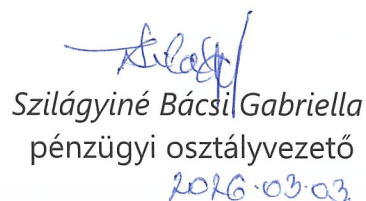 Szilágyiné Bácsi Gabriella
pénzügyi osztályvezető
2026.03.03